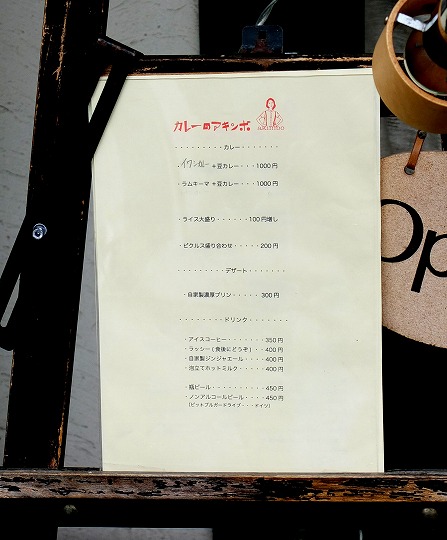 カレーのアキンボ
akimbo
・・・・・・・・・カレー・・・・・・・
・イワシカレー＋豆カレー・・・1000円
・ラムキーマ＋豆カレー・・・1000円
・ライス大盛り・・・・・・100円増し
・ピクルス盛り合わせ・・・・・200円
・・・・・・・・・デザート・・・・・・・
・自家製濃厚プリン・・・・・300円
・・・・・・・・・ドリンク・・・・・・・
・アイスコーヒー・・・・・・・・350円
・ラッシー(食後にどうぞ)・・・400円
・自家製ジンジャエール・・・・400円
・泡立てホットミルク・・・・・400円
・瓶ビール・・・・・・・・・・450円
・ノンアルコールビール・・・・450円
(ビットブルガードライブ・・・ドイツ)
Op